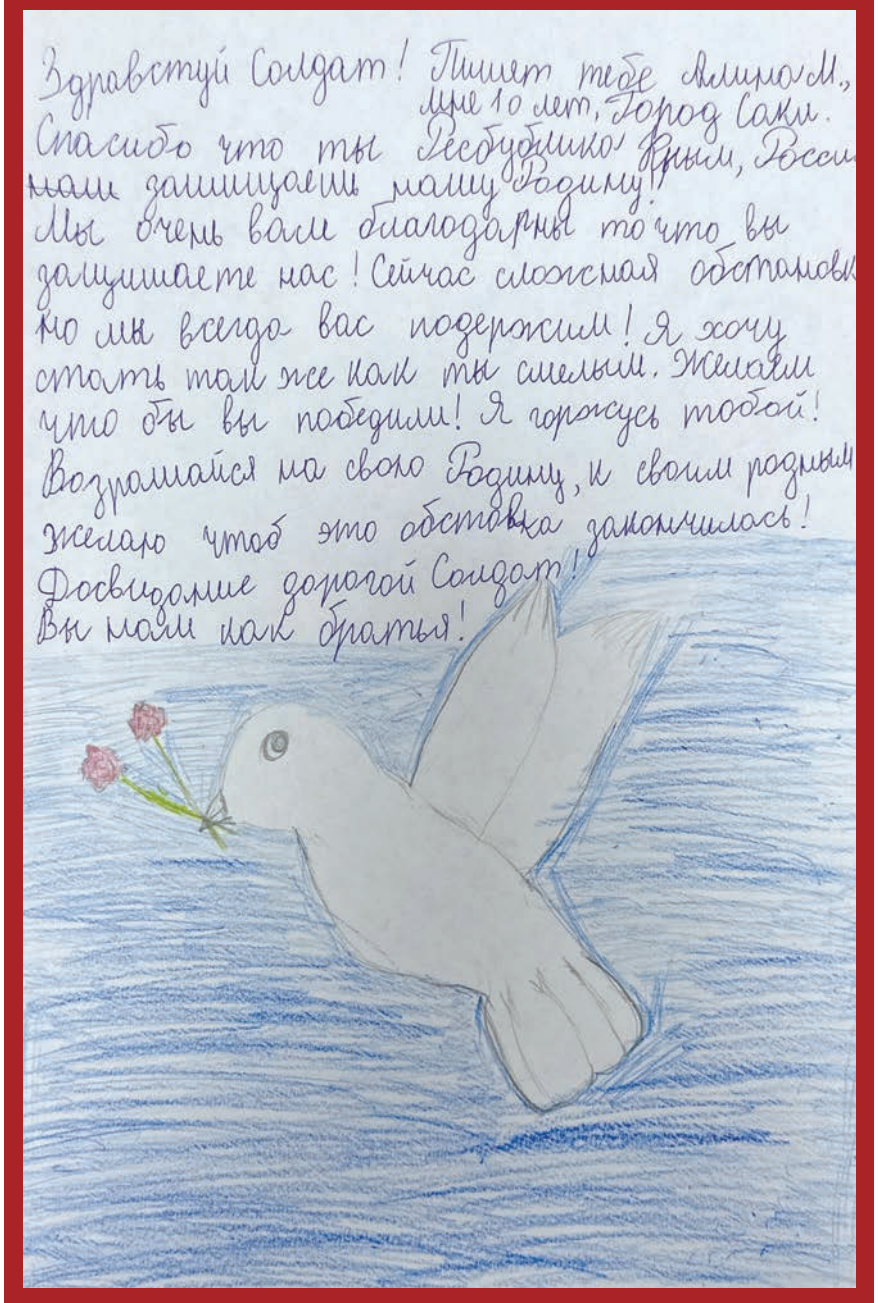 Здравстуй Солдат! Пишет тебе Алина М.,
мне 10 лет, Город Саки.
Спасибо что ты Республика Крым, Росси
наш защищаешь нашу Родину!
Мы очень вам благодарны то что вы
защищаете нас! Сейчас сложная обстановк
но мы всегда вас подержим! Я хочу
стать так же как ты смелым. Желаем
что бы вы победили! Я горжусь тобой!
Возрашайся на свою Родину, к своим родным
желаю чтоб это обставка закончилась!
Досвидание дорогой Солдат!
Вы нам как братья!